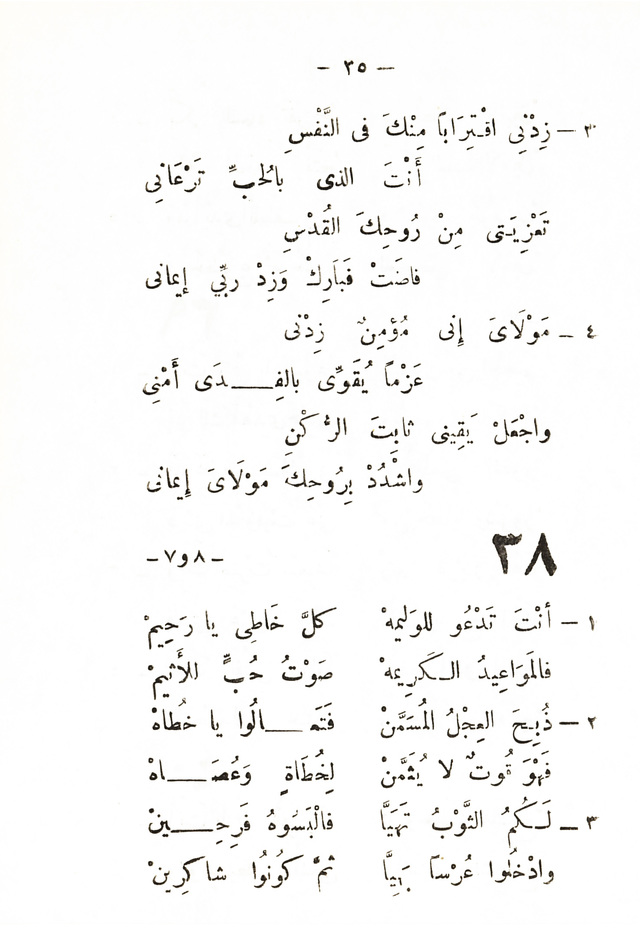 – ٣٥ –
٣ – زِدْنِي اقْتِرَاباً مِنْكَ فى النَّفْسِ
أَنْتَ الذى بالحُبِّ تَرْعَانِى
تَعْزِيَتى مِنْ رُوحِكَ القُدْسِ
فاضَتْ فَبَارِكْ وَزِدْ ربِّي إيمانى
٤ – مَوْلَاىَ إِنى مُؤمِنٌ زِدْنى
عَزْماً يُقَوِّى بالفِـــدَى أَمْنِى
واجْعَلْ يَقِينى ثابِتَ الرُّكْنِ
واشْدُدْ بِرُوحِكَ مَوْلَاىَ إِيمانى
٣٨ –٨و٧–
١ – أنْتَ تَدْعُو للوَليمهْ كلَّ خَاطِى يا رَحِيمْ
فالمَوَاعِيدُ الـكَرِيمهْ صَوْتُ حُبٍّ للأَثيمْ
٢ – ذُبِحَ العِجْلُ المُسَمَّنْ فَتَعــالُوا يا خُطاهْ
فَهْوَ قُوتٌ لا يُثمَّنْ لِخُطَاةٍ وَعُصَــاهْ
٣ – لَـكُمُ الثَّوْبُ تَهَيَّا فالْبَسُوهُ فَرِحِــينْ
وادْخُلُوا عُرْسًا بَهِيًّا ثمَّ كُونُوا شاكِرِينْ